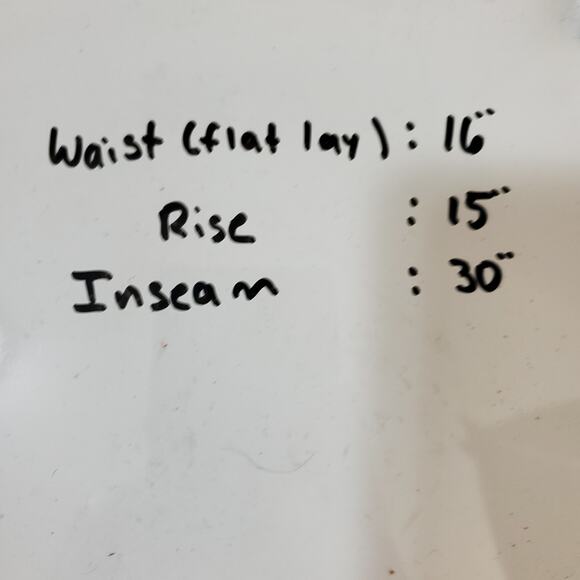 Waist (flat lay) : 16"
Rise : 15"
Inseam : 30"